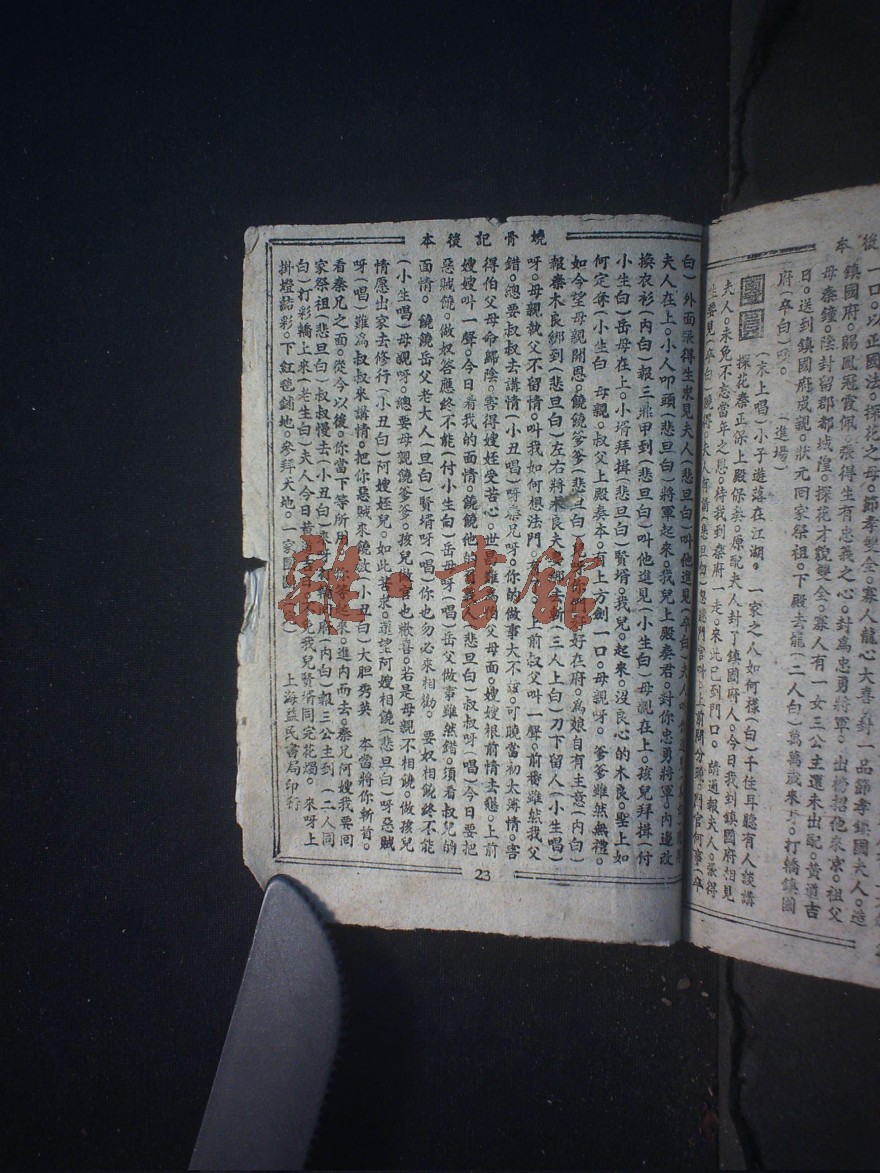 後本
一口。以正國法。探花之母。節孝雙全。寡人龍心大喜。封一品節孝鎮國夫人。造
鎮國府。賜鳳冠霞佩。張得生有忠義之心。封為忠勇將軍。出榜招他來京。祖父
母秦鐘。陰封留郡都城隍。探花才貌雙全。寡人有一女三公主還未出配。黃道吉
日。送到鎮國府成親。狀元回家祭祖。下殿去罷(二人白)萬萬歲來呀。打轎鎮國
府(卒白)呀。 (進場)
(末上唱)小子遊落在江湖。一家之人如何樣(白)千住耳聽有人談講
探花秦正保上殿保奏。原配夫人封了鎮國府人。今日我到鎮國府相見
夫人。未免不忘當年之恩。待我到秦府一走。來此已到門口。請通報夫人。張得
生要見(卒白)曉得。
燒骨記後本
白)外面張得生求見夫人(悲旦白)叫他進見(卒白)夫人
夫人在上。小人叩頭(悲旦白)將軍起來。我兒上殿奏君。封你忠勇將軍。內邊改
換衣衫(內白)報三鼎甲到(悲旦白)叫他進見(小生白)母親在上。孩兒拜揖(付
小生白)岳母在上。小壻拜揖(悲旦白)賢壻。我兒。起來。沒良心的木良。聖上如
何定奪(小生白 母親。叔父上殿奏本。有上方劍一口。母親呀。爹爹雖然無禮。
如今望母親開恩。饒饒爹爹(悲旦白)好在府。為娘自有主意(內白)
報秦木良綁到(悲旦白)左右將木良夫三人上白)刀下留人(小生唱)
呀母親執父不留情。叫我如何想法門。上前叔父叫一聲。前番雖然我父
錯。總要叔叔去講情(小丑唱)呀秦兄呀。你的做事大不該。可曉當初太薄情。害
得伯父母命歸陰。害得嫂姪受苦心。世上難為伯父母面。嫂嫂根前情去懇。上前
嫂嫂叫一聲。今日看我的面情。饒饒他的悲旦白)叔叔呀(唱)今日要把
惡賊饒。做奴答應終不能(付小生白)岳母呀(唱)岳父做事雖然錯。須看叔兒的
面情。饒饒岳父老大人(旦白)賢壻呀(唱)你也勿必來相勸。要奴相饒終不能
(小生唱)母親呀。總要母親饒爹爹。孩兒做官也歡喜。若是母親不相饒。做孩兒
情愿出家去修行(小丑白)阿嫂姪兒。如此苦求。還望阿嫂相饒(悲旦白)呀惡賊
呀(唱)難為叔叔來講情。把你惡賊來饒放(小丑白)大胆秀英 本當將你斬首。
看秦兄之面。從今以後。你當下等所用。你等起來。進內而去。秦兄阿嫂我要回
家祭祖(悲旦白)叔叔慢去(小丑白)來呀。打轎回府(內白)報三公主到 (二人同
白)打彩轎上來(老生白)夫人今日黃道吉日。我兒賢壻同完花燭。來呀上
掛燈結彩。下紅毡鋪地。參拜天地。一家團圓
上海益民書局印行
23
雜·書館